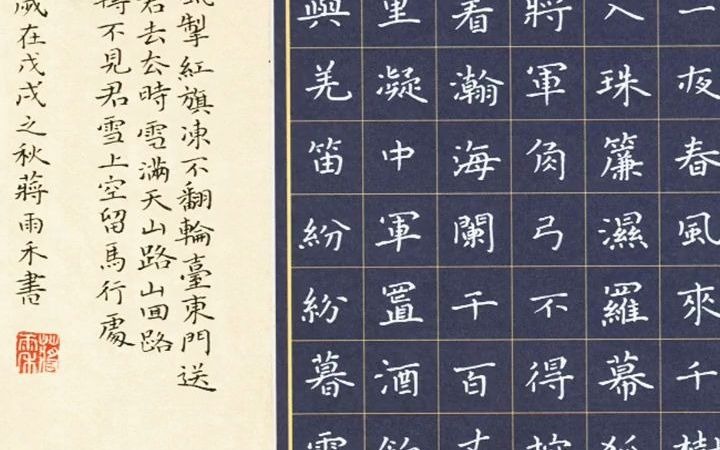 一夜春風來千樹
入珠簾濕羅幕狐
將軍角弓不得控
看瀚海闌干百丈
里凝中軍置酒飲
與羌笛紛紛暮雪
風掣紅旗凍不翻輪臺東門送
君去去時雪滿天山路山回路
轉不見君雪上空留馬行處
歲在戊戌之秋蔣雨禾書
蔣雨禾